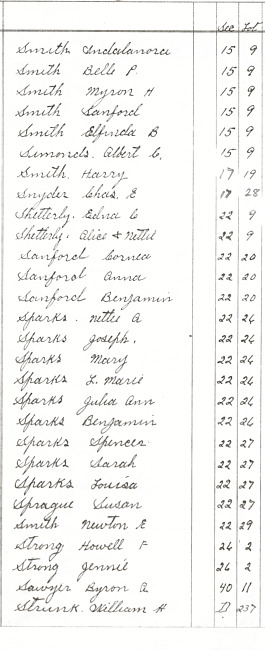 Sec Lot
Smith Indalanora 15 9
Smith Belle P. 15 9
Smith Myron H 15 9
Smith Sanford 15 9
Smith Elfinda B 15 9
Simonds. Albert C. 15 9
Smith. Harry 17 19
Snyder Chas. E 17 28
Shetterly. Edna C 22 9
Shetterly. Alice & Nettie 22 9
Sanford Cornea 22 20
Sanford Anna 22 20
Sanford Benjamin 22 20
Sparks. Nettie A 22 26
Sparks Joseph. 22 26
Sparks Mary 22 26
Sparks L. Marie 22 26
Sparks Julia Ann 22 26
Sparks Benjamin 22 26
Sparks Spencer 22 27
Sparks Sarah 22 27
Sparks Louisa 22 27
Sprague Susan 22 27
Smith Newton E 22 29
Strong Howell F 26 2
Strong Jennie 26 2
Sawyer Byron A 40 11
Strunk. William H D 237